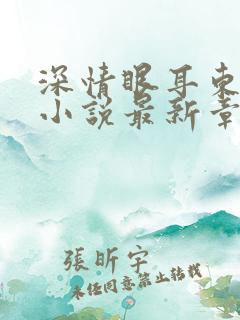 深情眼耳東
小說最新章
張昕宇
未经同意禁止转载